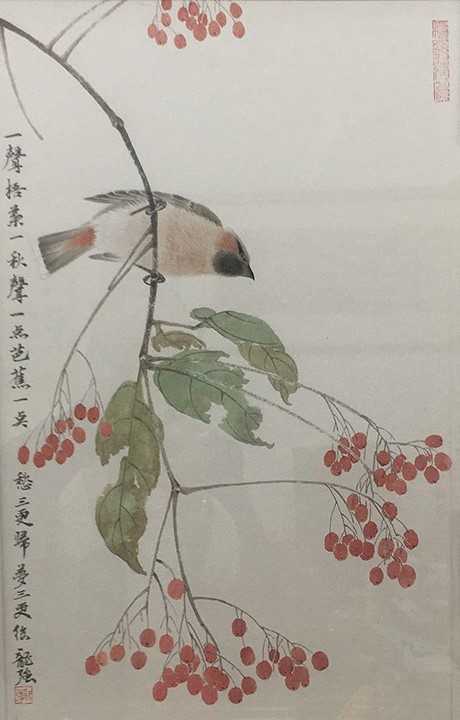 一聲梧葉一秋聲一点芭蕉一点愁三更歸夢三更後 龍強